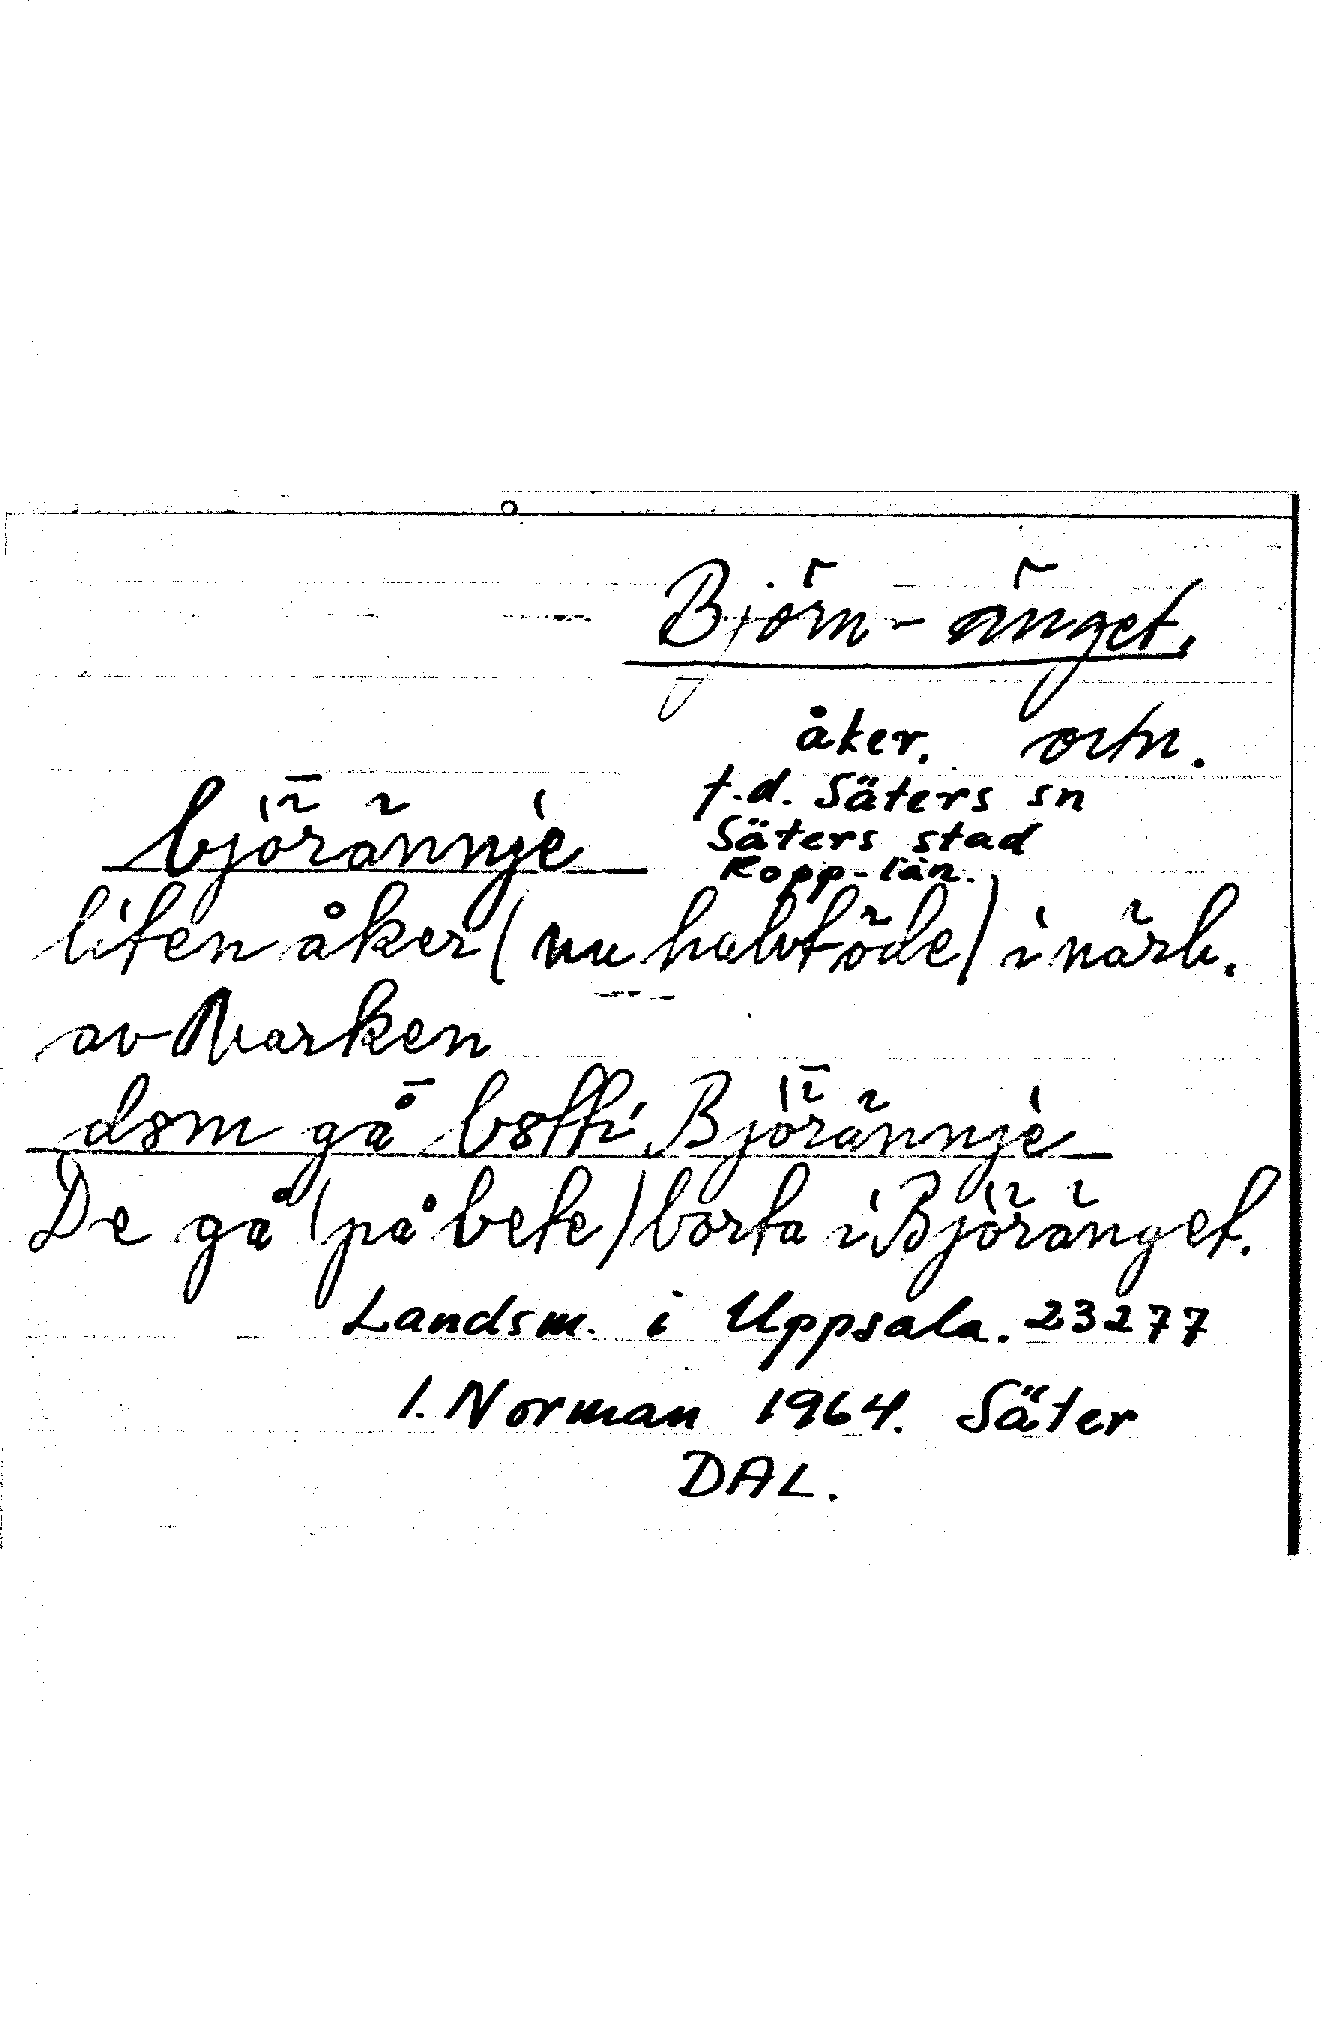 Björn-änget.
åker. ortn.
f.d. Säters sn
björännje Säters stad
Kopp-län.
liten åker (nu halvföde) i närh.
av Marken
dom gå bstti Björännje
De gå (på bete) borta i Björänget.
Landsm. i Uppsala. 23277
I. Norman 1964. Säter
DAL.